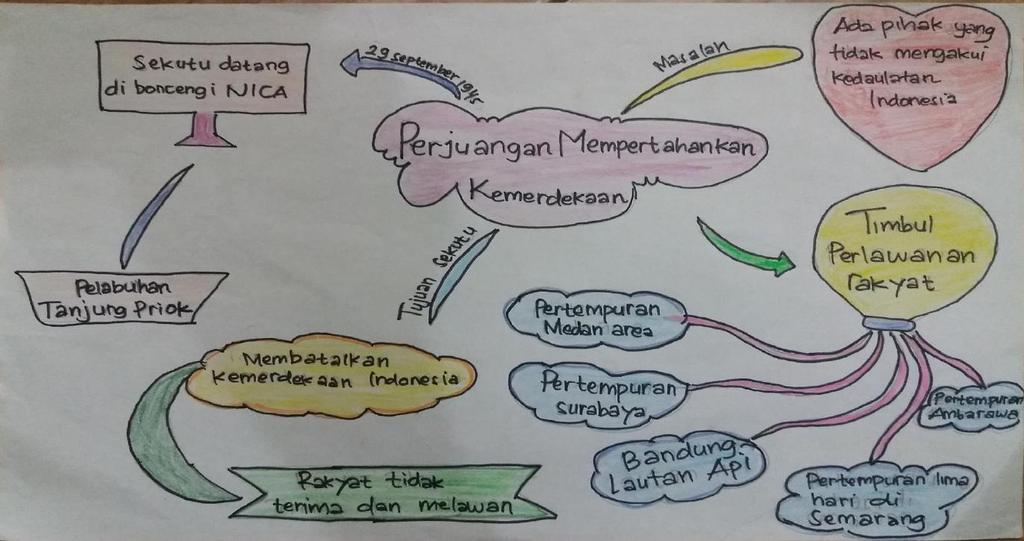 Sekutu datang
di boncengi NICA
29 september 1945
Masalah
Ada pihak yang
tidak mengakui
kedaulatan
Indonesia
Perjuangan Mempertahankan
Kemerdekaan
Tujuan sekutu
Timbul
Perlawanan
rakyat
Pelabuhan
Tanjung Priok
Membatalkan
kemerdekaan Indonesia
Rakyat tidak
terima dan melawan
Pertempuran
Medan area
Pertempuran
surabaya
Bandung
Lautan Api
Pertempuran lima
hari di
Semarang
Pertempuran
Ambarawa